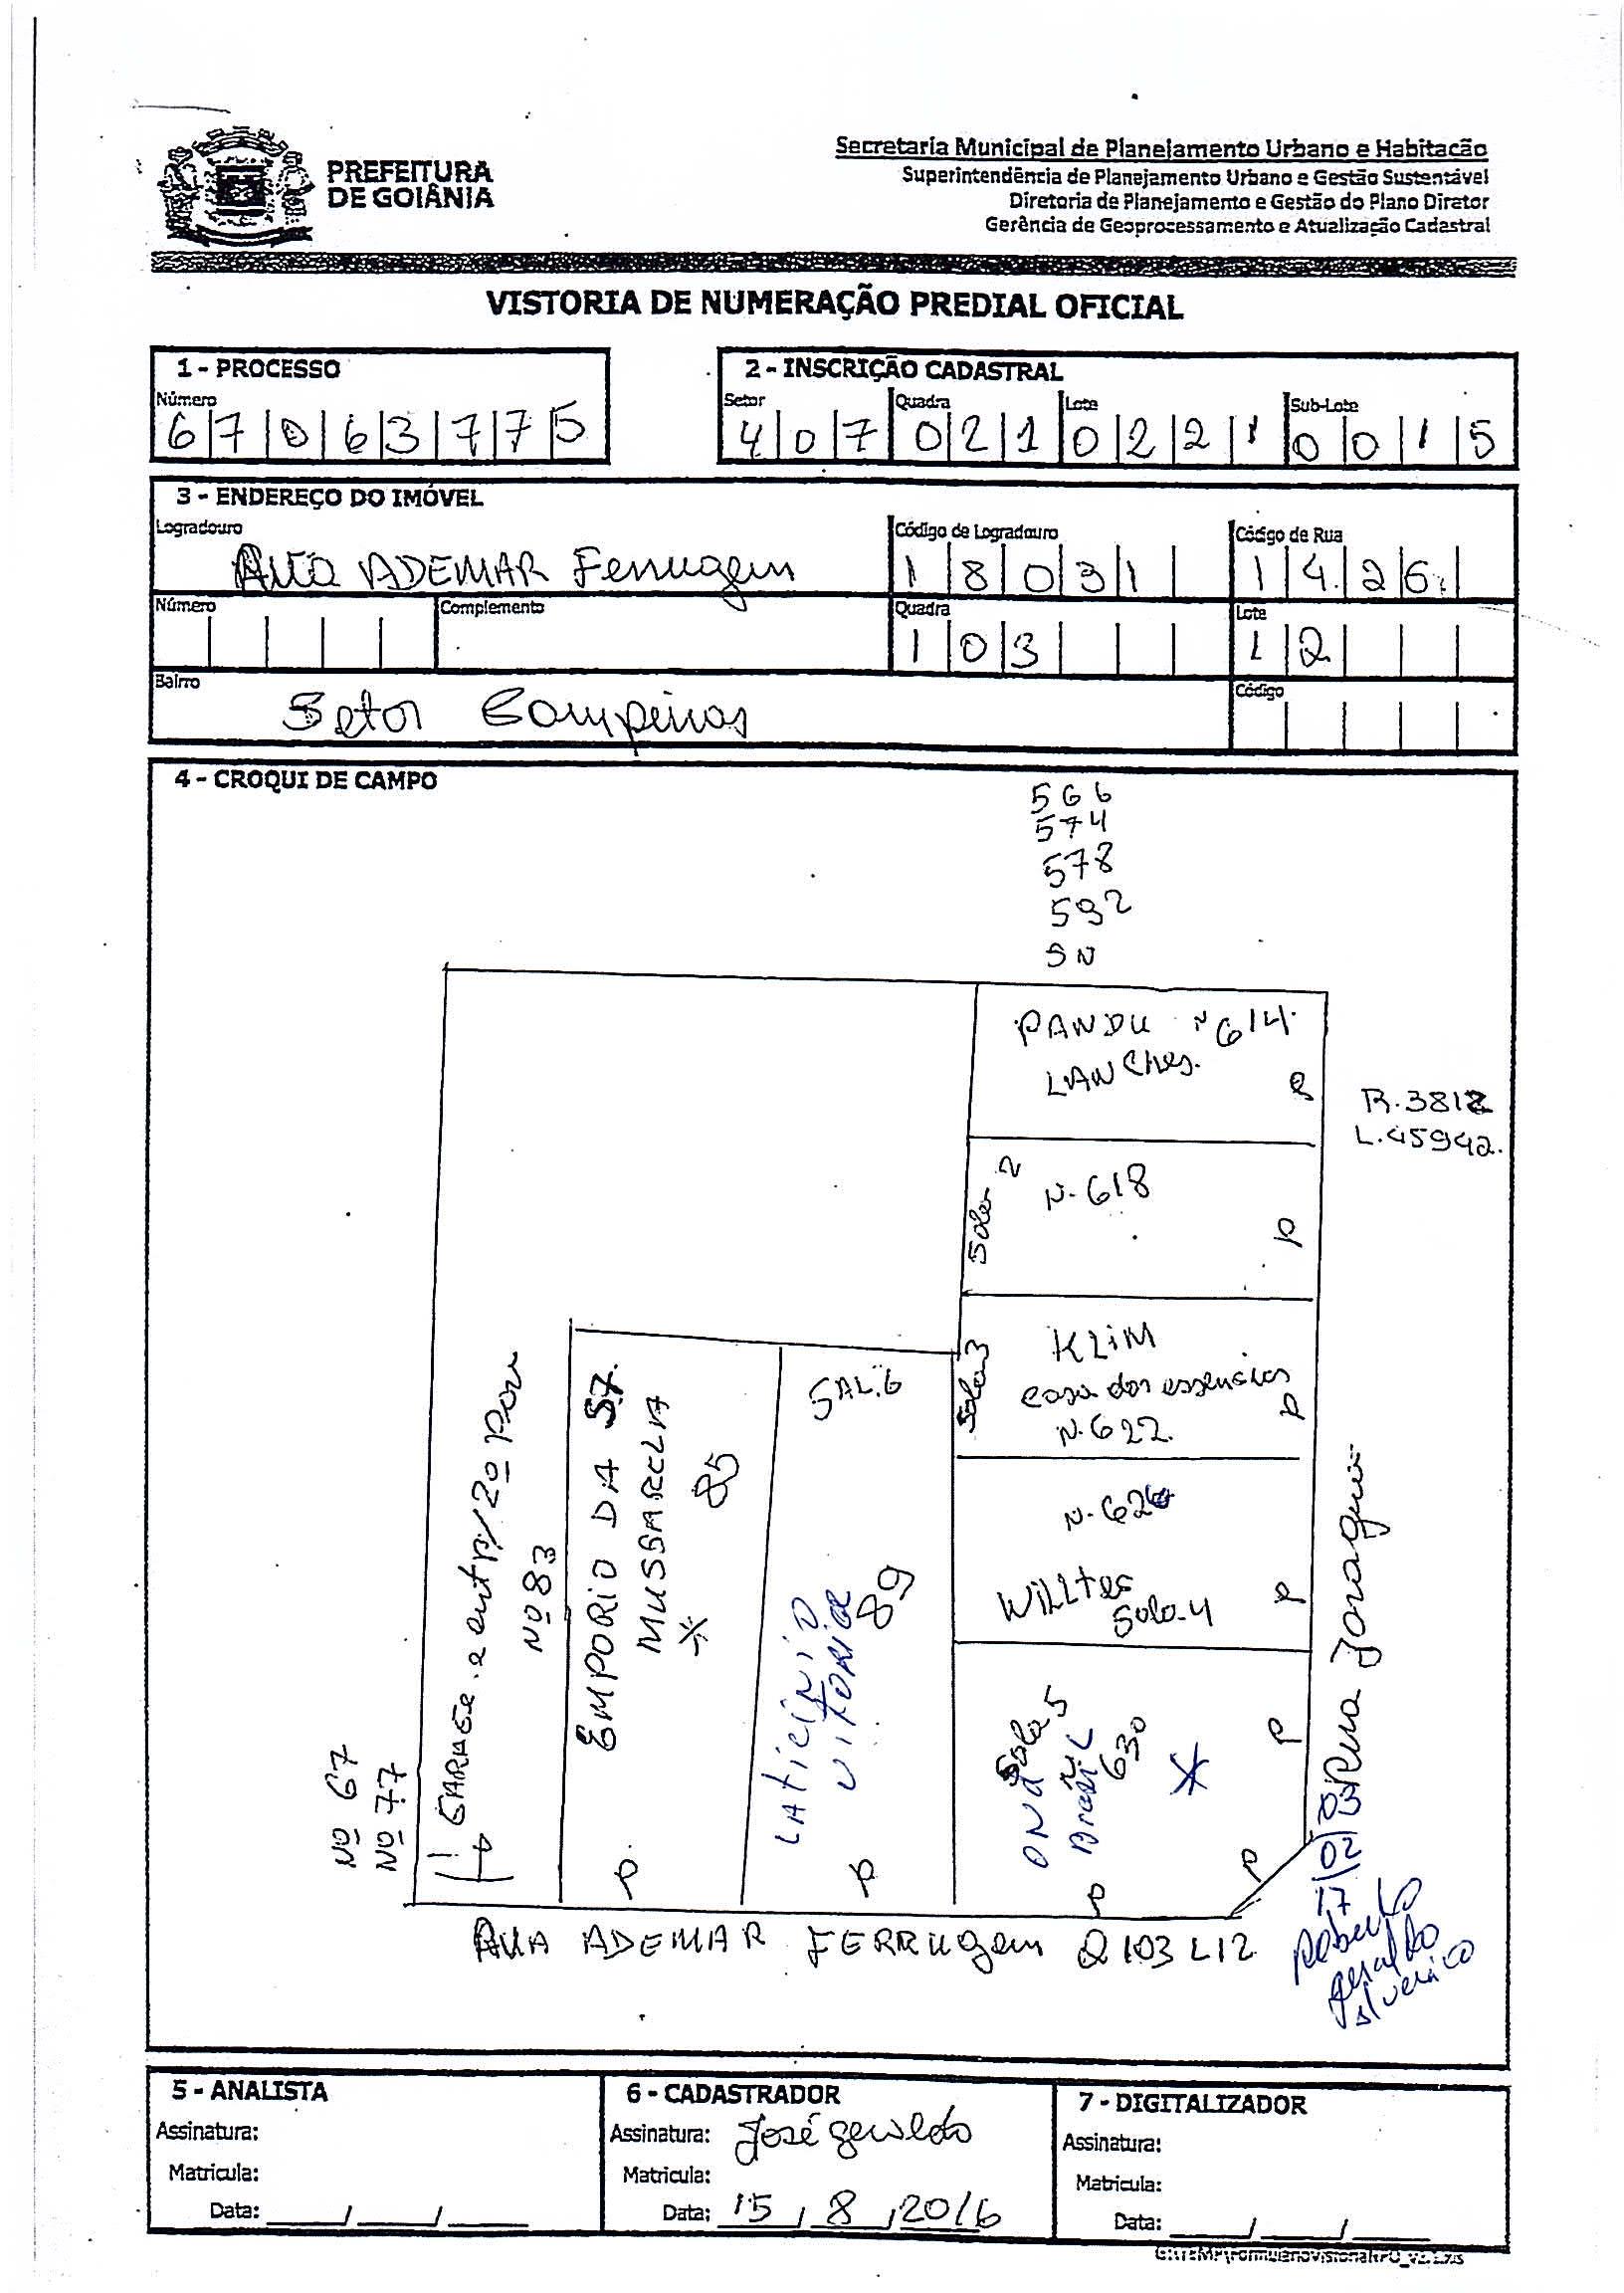 PREFEITURA
DE GOIÂNIA
Secretaria Municipal de Planejamento Urbano e Habitação
Superintendência de Planejamento Urbano e Gestão Sustentável
Diretoria de Planejamento e Gestão do Plano Diretor
Gerência de Geoprocessamento e Atualização Cadastral
VISTORIA DE NUMERAÇÃO PREDIAL OFICIAL
1 - PROCESSO
Número
6 7 0 6 3 7 7 5
2 - INSCRIÇÃO CADASTRAL
Setor Quadra Lote Sub-Lote
4 0 7 0 2 1 0 2 2 1 0 0 1 5
3 - ENDEREÇO DO IMÓVEL
Logradouro Código de Logradouro Código de Rua
Rua ADEMAR Ferrugem 1 8 0 3 1 1 4 2 6
Número Complemento Quadra Lote
1 0 3 1 2
Bairro Código
Setor Campinas
4 - CROQUI DE CAMPO
566
574
578
592
SN
PANDU N 614
LANCHES.
P
R.3812
L.45942.
Sala 2
N. 618
P
Sala 3
KLIM
casa das essencias
N. 622.
P
N. 626
WILLTEC
Sala-4
P
Sala 5
ONDA
BRASIL
630
P
P
P
SAL.6
LATICINIO
VITORIA
89
P
EMPORIO DA S7.
MUSSARELA
85
P
GARAGE. e entr/2º Pav
Nº 83
Nº 67
Nº 77
Rua Jaraguá
17/02/03
Roberto
Geraldo
Silverico
RUA ADEMAR FERRUGEM Q103 L12
5 - ANALISTA
Assinatura:
Matricula:
Data: ___/___/___
6 - CADASTRADOR
Assinatura: José Geraldo
Matricula:
Data: 15 / 8 / 2016
7 - DIGITALIZADOR
Assinatura:
Matricula:
Data: ___/___/___